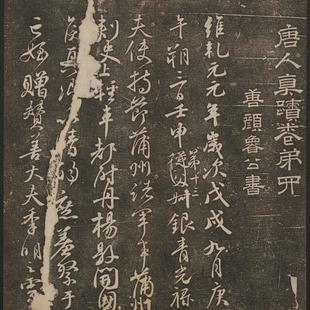 唐人真蹟卷弟四
顏魯公書
維乾元元年歲次戊戌九月庚
午朔三日壬申第十三叔銀青光祿
夫使持節蒲州諸軍事蒲州
刺史上輕車都尉丹楊縣開國
侯真卿以清酌庶羞祭于
亡姪贈贊善大夫季明之靈